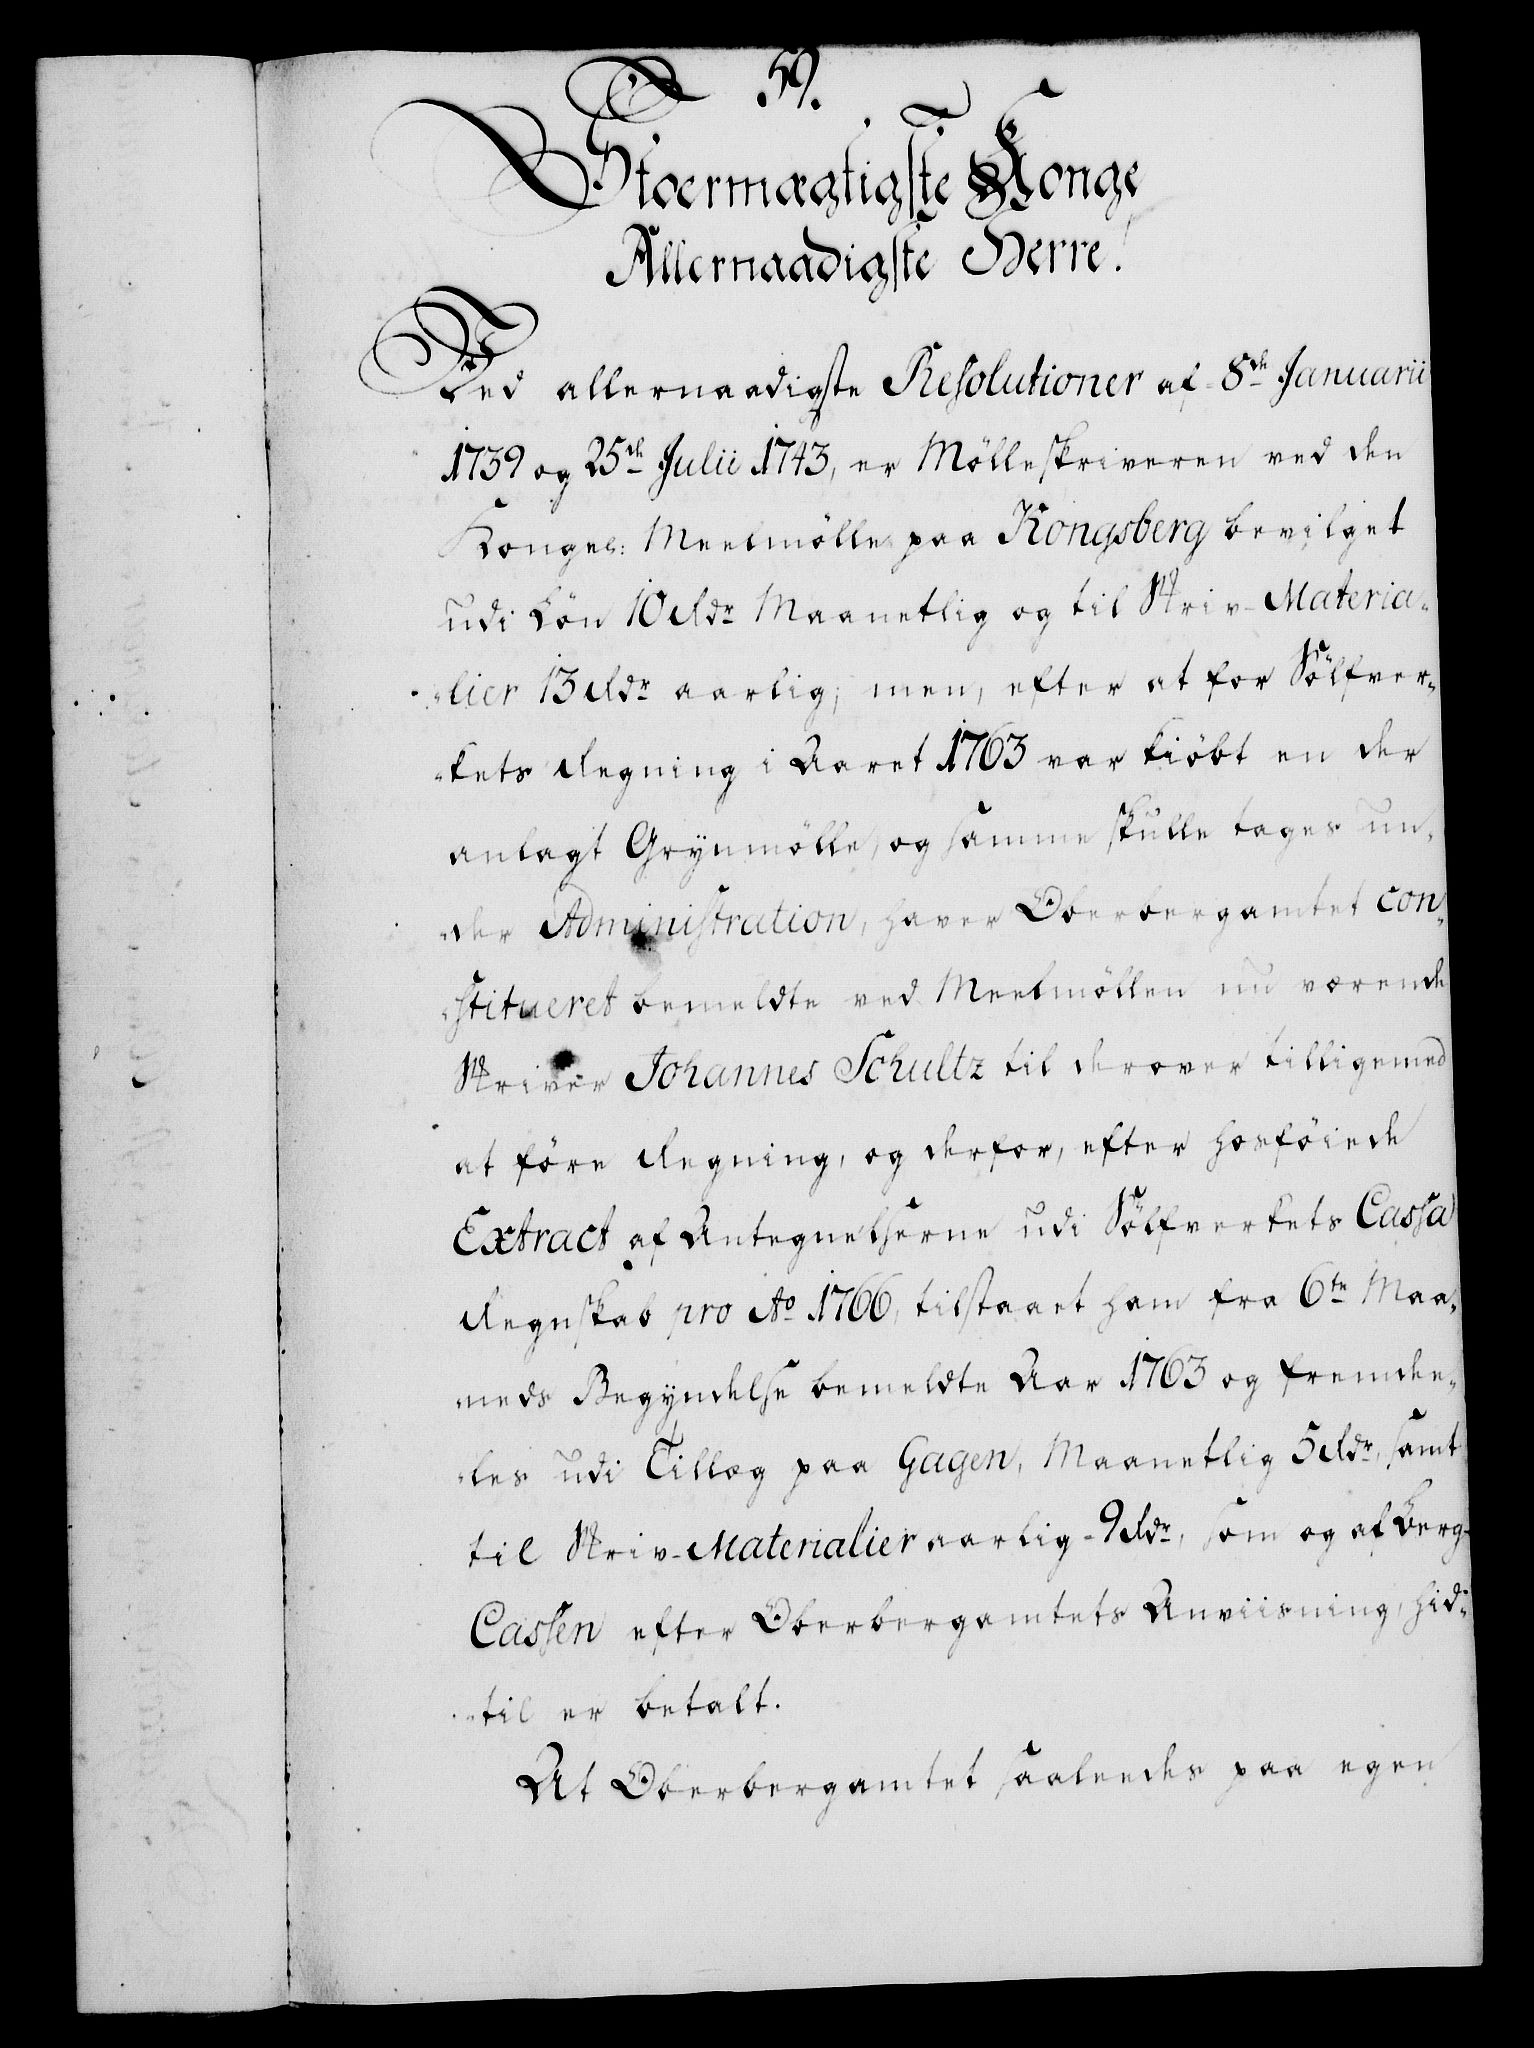 59.
Stoermægtigste Konge
Allernaadigste Herre!
Ved allernaadigste Resolutioner af 8de Januarii
1739 og 25de Julii 1743, er Mølleskriveren ved den
Kongel: Meelmølle paa Kongsberg bevilget
udi Løn 10 Rdr Maanetlig og til Skriv-Materia-
lier 13 Rdr aarlig; men, efter at for Sølfver-
kets Regning i Aaret 1763 var kiøbt en der
anlagt Grynmølle, og samme skulle tages un-
der Administration, haver Oberbergamtet con-
stitueret bemeldte ved Meelmøllen nu værende
Skriver Johannes Schultz til derover tilligemed
at føre Regning, og derfor, efter hosføiede
Extract af Antegnelserne udi Sølfverkets Cassa
Regnskab pro Ao 1766, tilstaaet ham fra 6te Maa-
neds Begyndelse bemeldte Aar 1763 og fremdee-
les udi Tillæg paa Gagen, Maanetlig 5 Rdr, samt
til Skriv-Materialier aarlig 9 Rdr, som og af Berg-
Cassen efter Oberbergamtets Anviisning, hid-
til er betalt.
At Oberbergamtet saaleedes paa egen